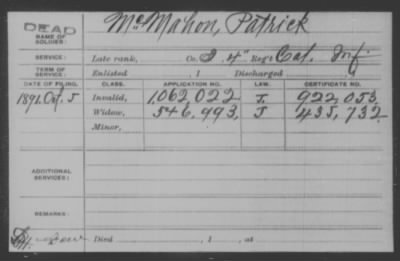 DEAD
NAME OF SOLDIER: McMahon, Patrick
SERVICE: Late rank, Co. I 4" Reg't Cal. Inf.
TERM OF SERVICE: Enlisted , 1 Discharged
DATE OF FILING. CLASS. APPLICATION NO. LAW. CERTIFICATE NO.
1891 Oct. 5 Invalid, 1,062,022 J. 922,053
Widow, 546,993, J 435,732
Minor,
ADDITIONAL SERVICES:
REMARKS:
Died , 1 , at